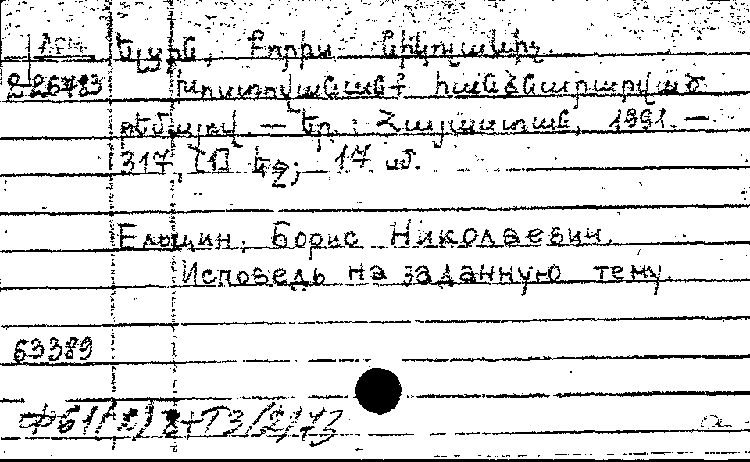 Ելցին, Բորիս Նիկոլաևիչ.
226783 Խոստովանանք հանձնարարված
թեմայով. — Եր.: Հայաստան, 1991. —
317, [1] եջ; 17 սմ.
Ельцин, Борис Николаевич.
Исповедь на заданную тему.
63389